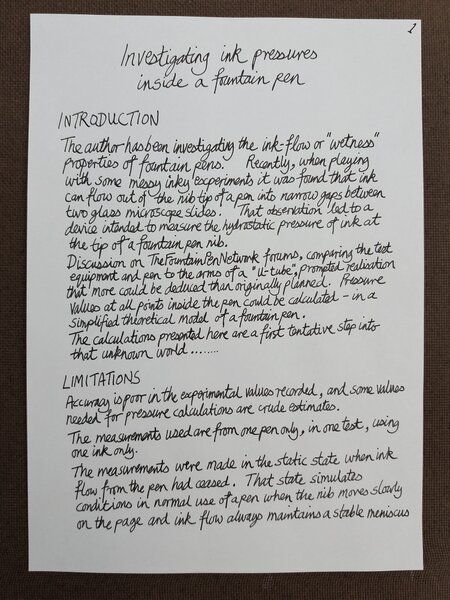 1
Investigating ink pressures
inside a fountain pen
INTRODUCTION
The author has been investigating the ink-flow or "wetness"
properties of fountain pens. Recently, when playing
with some messy inky experiments it was found that ink
can flow out of the nib tip of a pen into narrow gaps between
two glass microscope slides. That observation led to a
device intended to measure the hydrostatic pressure of ink at
the tip of a fountain pen nib.
Discussion on TheFountainPenNetwork forums, comparing the test
equipment and pen to the arms of a "u-tube", prompted realisation
that more could be deduced than originally planned. Pressure
values at all points inside the pen could be calculated - in a
simplified theoretical model of a fountain pen.
The calculations presented here are a first tentative step into
that unknown world ........
LIMITATIONS
Accuracy is poor in the experimental values recorded, and some values
needed for pressure calculations are crude estimates.
The measurements used are from one pen only, in one test, using
one ink only.
The measurements were made in the static state when ink
flow from the pen had ceased. That state simulates
conditions in normal use of a pen when the nib moves slowly
on the page and ink flow always maintains a stable meniscus